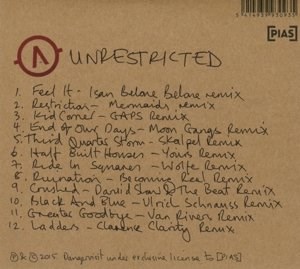 [PIAS]
UNRESTRICTED
1. Feel It - Ivan Belane Belane remix
2. Restriction - Mermaids remix
3. Kid Corner - GAPS Remix
4. End of Our Days - Moon Gangs Remix
5. Third Quarter Storm - Skalpel Remix
6. Half Built Houses - Yours Remix
7. Ride In Squares - Wolfe Remix
8. Rumination - Becoming Real Remix
9. Crushed - David Shaw & The Beat Remix
10. Black And Blue - Ulrich Schnauss Remix
11. Greater Goodbye - Van Rivers Remix
12. Ladders - Clarence Clarity Remix
℗ & © 2015 under exclusive license to [PIAS]